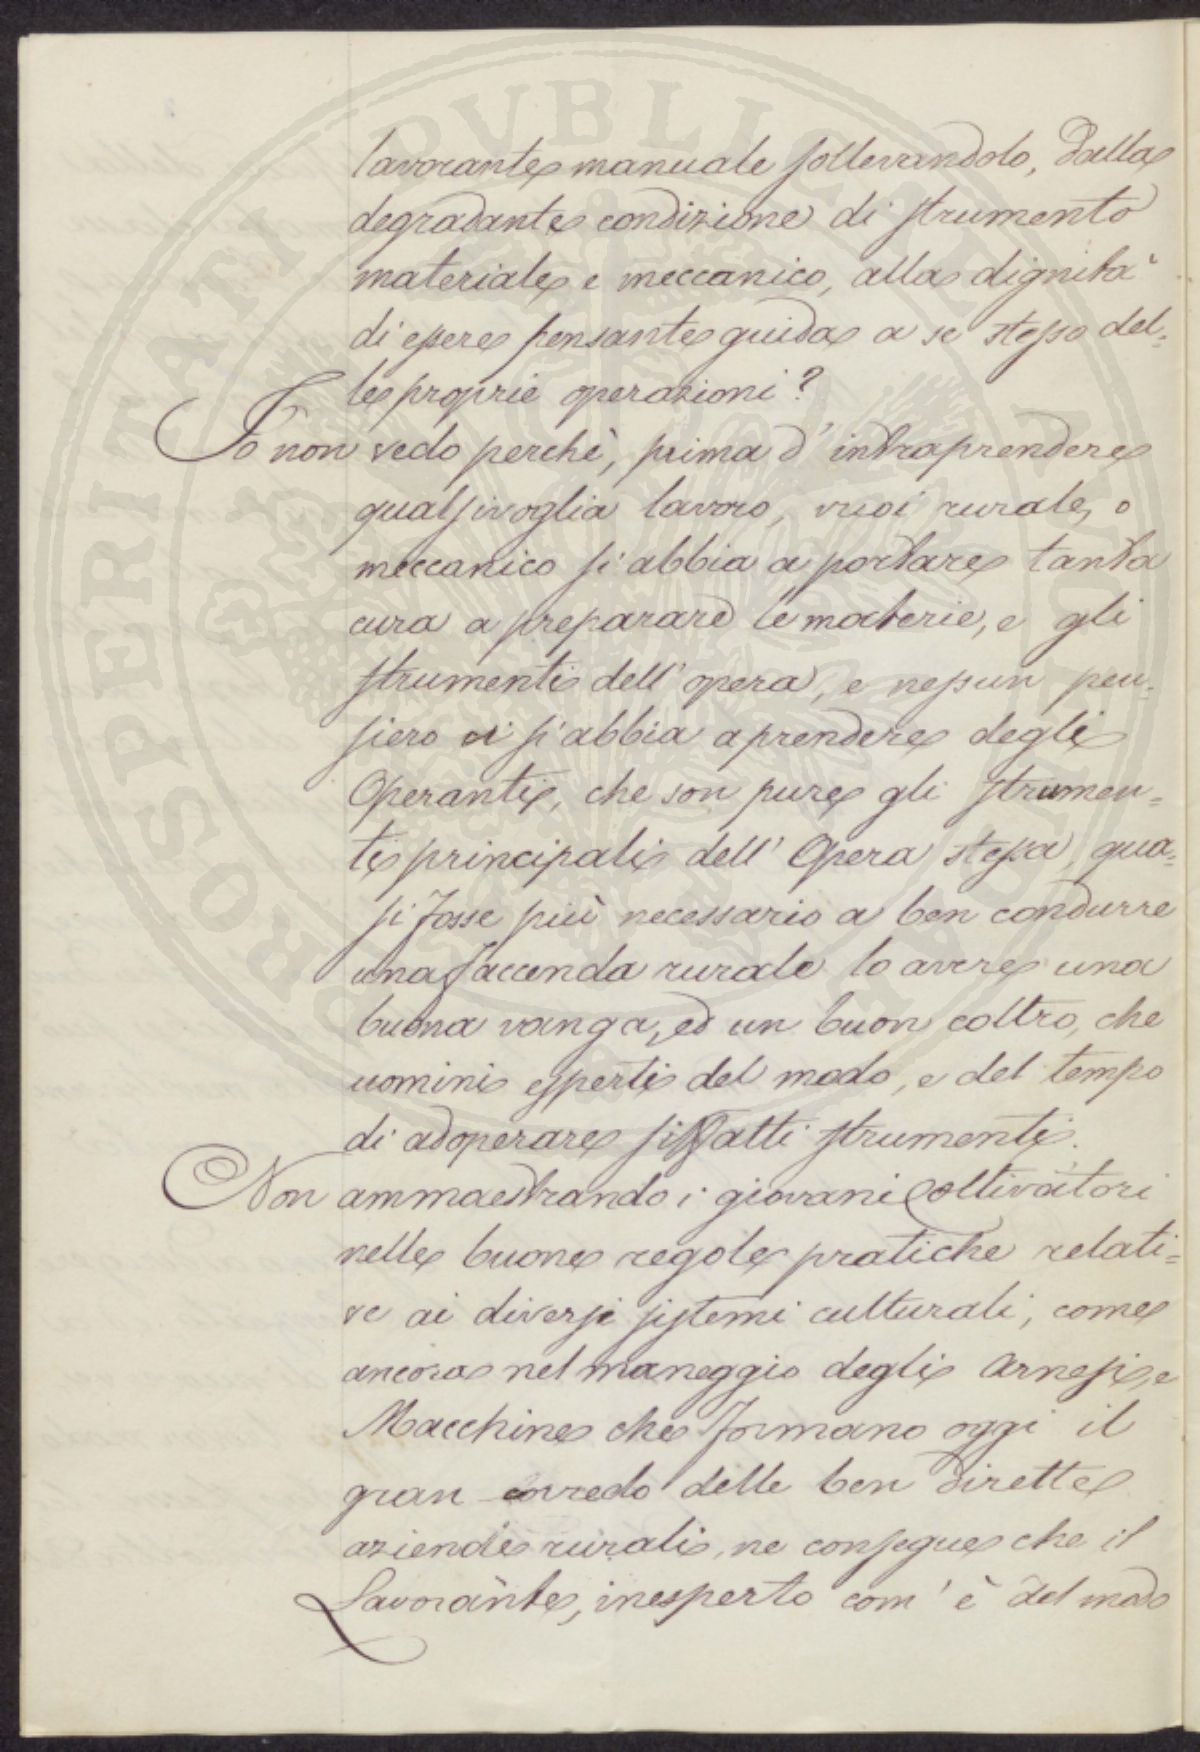 lavorante manuale sollevandolo, dalla
degradante condizione di strumento
materiale e meccanico, alla dignità
di essere pensante guida a se stesso del=
le proprie operazioni?
Io non vedo perchè, prima d'intraprendere
qualsivoglia lavoro, vuoi rurale, o
meccanico si abbia a portare tanta
cura a preparare le materie, e gli
strumenti dell'opera, e nessun pen=
siero si abbia a prendere degli
Operanti, che son pure gli strumen=
ti principali dell'Opera stessa, qua=
si fosse più necessario a ben condurre
una faccenda rurale lo avere una
buona vanga, ed un buon coltro, che
uomini esperti del modo, e del tempo
di adoperare siffatti strumenti.
Non ammaestrando i giovani Coltivatori
nelle buone regole pratiche relati=
ve ai diversi sistemi culturali, come
ancora nel maneggio degli Arnesi, e
Macchine che formano oggi il
gran corredo delle ben dirette
aziende rurali, ne consegue che il
Lavorante, inesperto com'è del modo
PROSPERITATI PVBLICAE